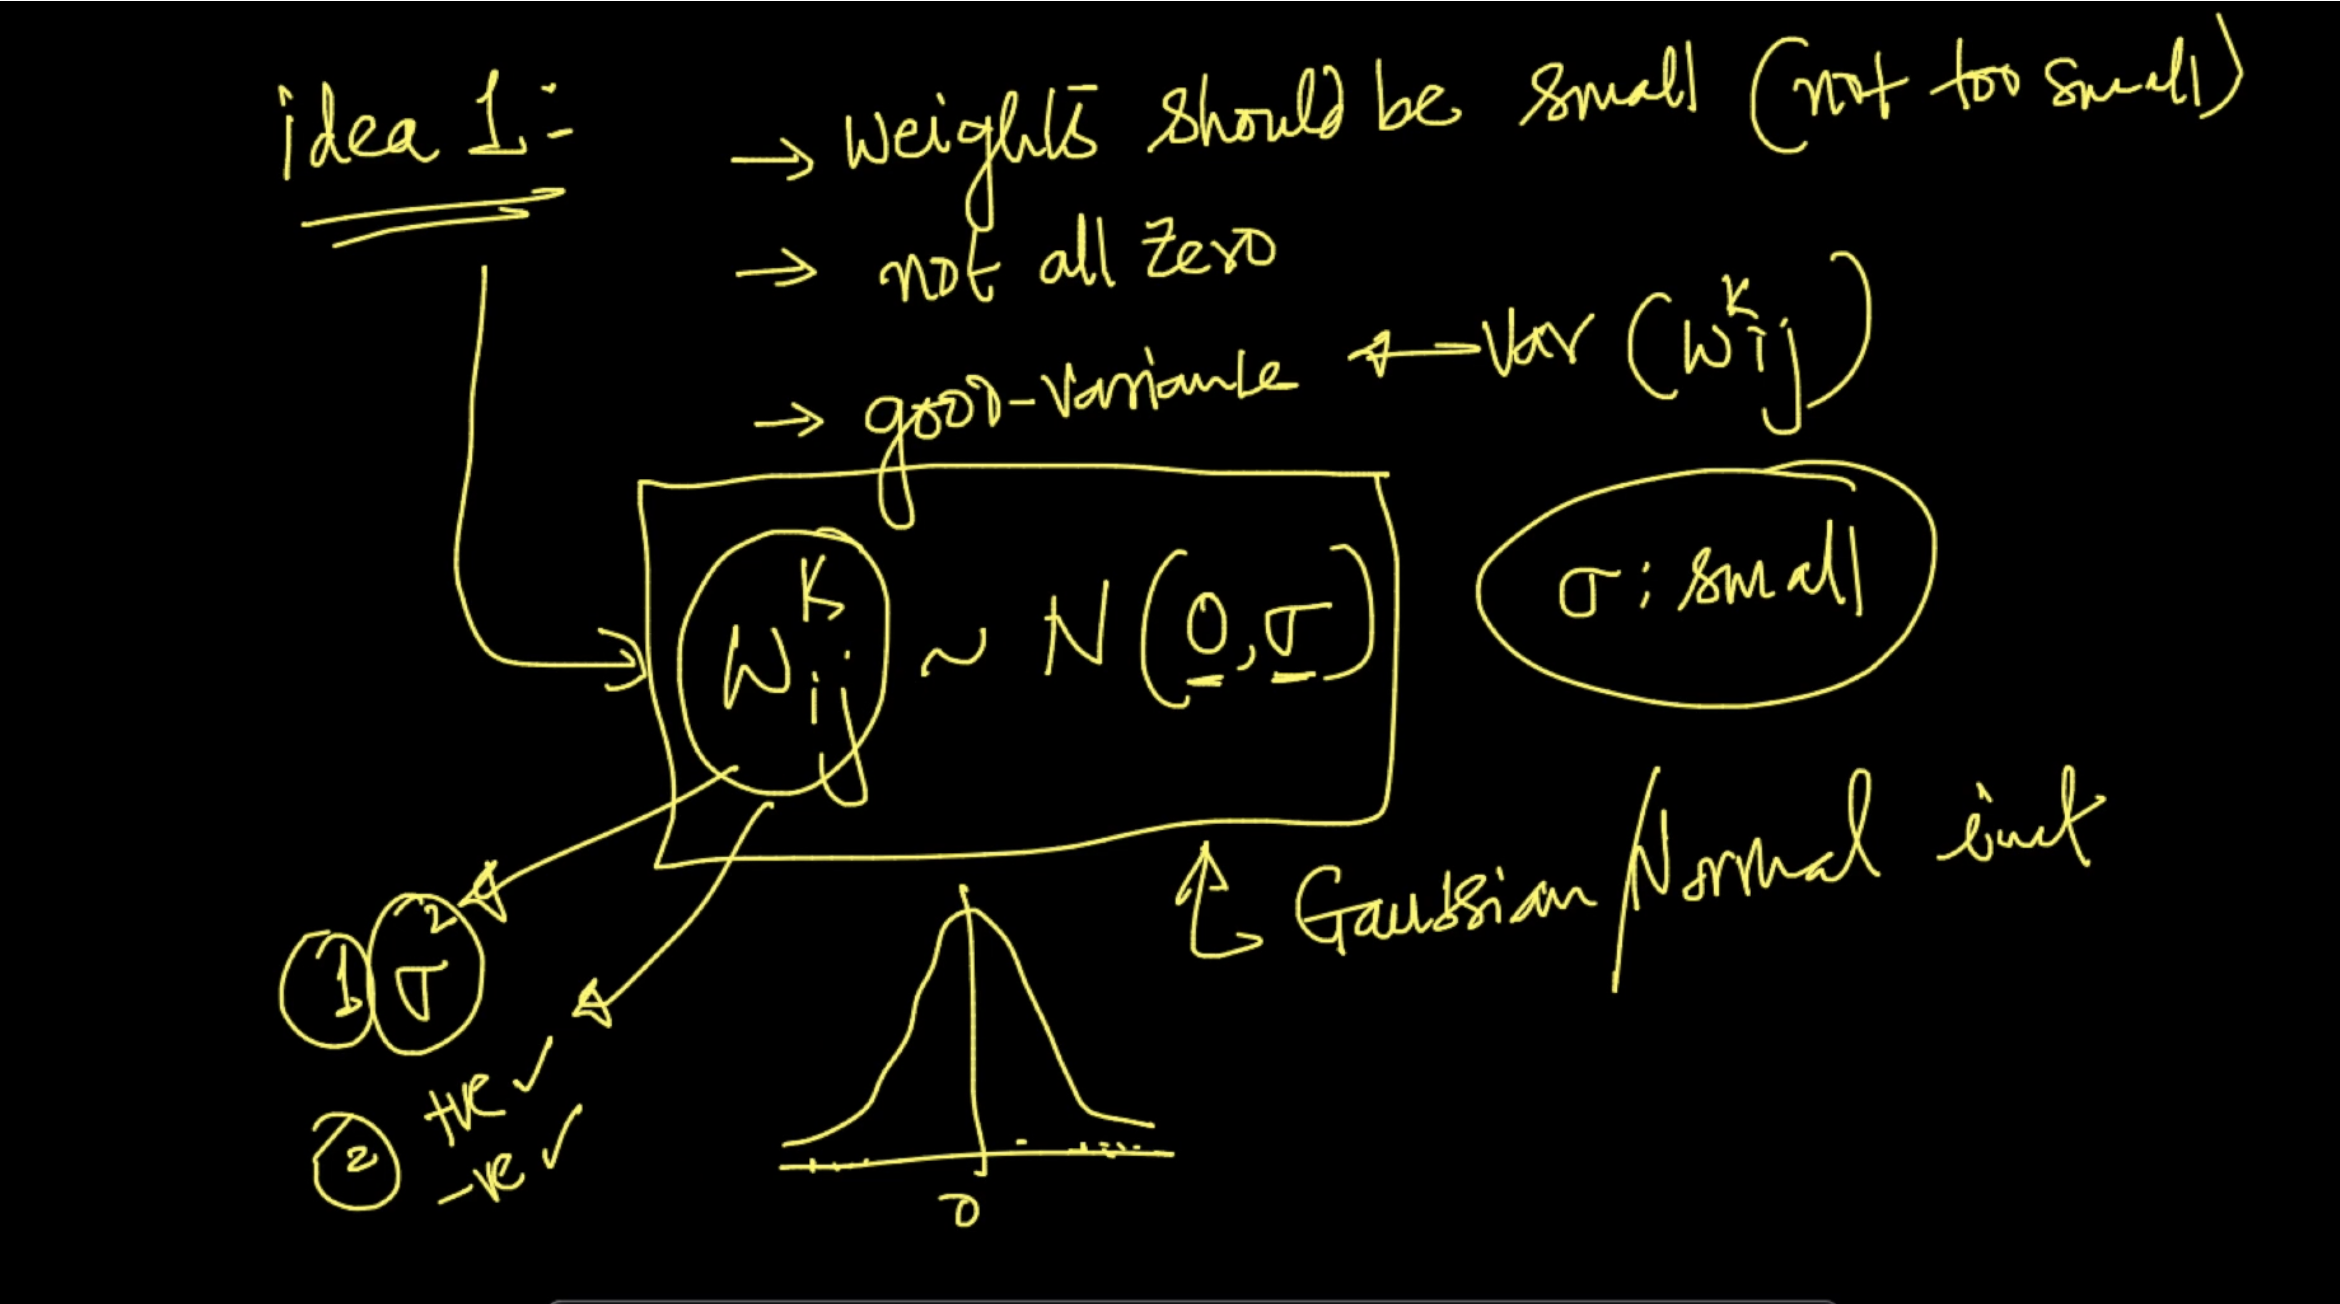 idea 1:- → weights should be small (not too small)
→ not all zero
→ good-variance ← Var (W^k_ij)
W^k_ij ~ N(0, σ)
σ: small
Gaussian/Normal init
① σ²
② +ve ✓
-ve ✓
0